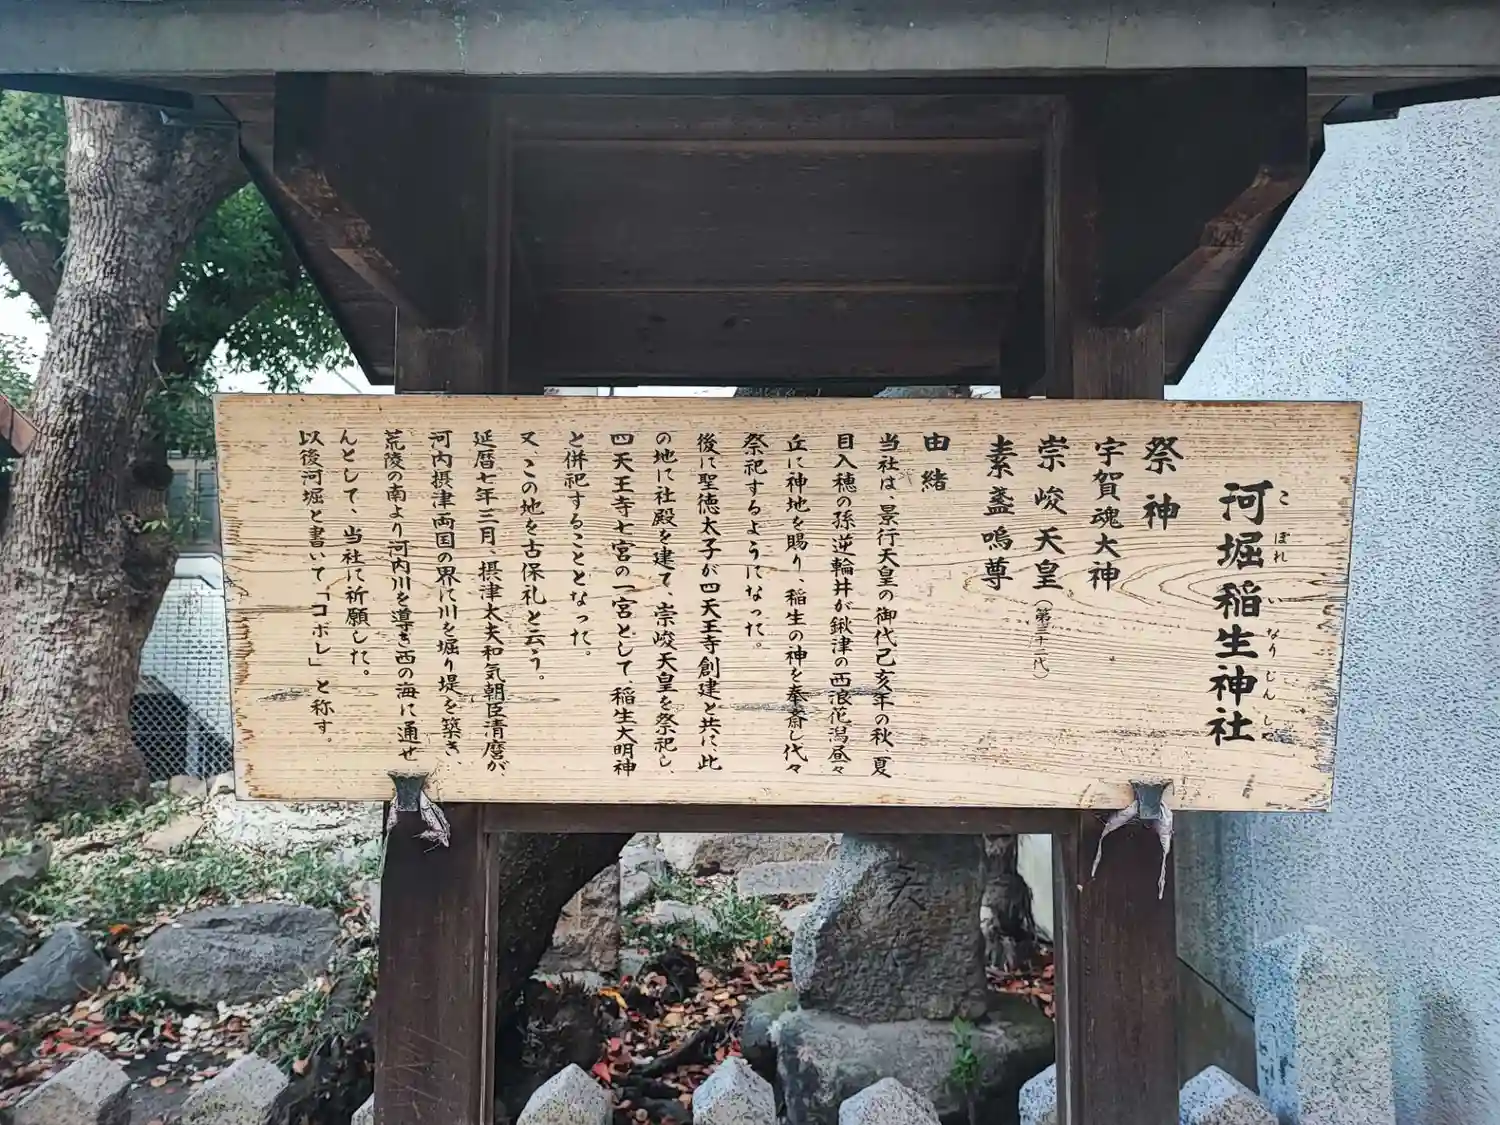 河堀稲生神社
こ ぼれ い なり じん しゃ
祭神
宇賀魂大神
崇峻天皇（第三十二代）
素盞嗚尊
由緒
当社は、景行天皇の御代己亥年の秋、夏
目入穂の孫逆輪井が鍬津の西浪花潟昼々
丘に神地を賜り、稲生の神を奉斎し代々
祭祀するようになった。
後に聖徳太子が四天王寺創建と共に此
の地に社殿を建て、崇峻天皇を祭祀し、
四天王寺七宮の一宮として、稲生大明神
と併祀することとなった。
又、この地を古保礼と云う。
延暦七年三月、摂津太夫和気朝臣清麿が、
河内摂津両国の界に川を堀り堤を築き、
荒陵の南より河内川を導き西の海に通せ
んとして、当社に祈願した。
以後河堀と書いて「コボレ」と称す。